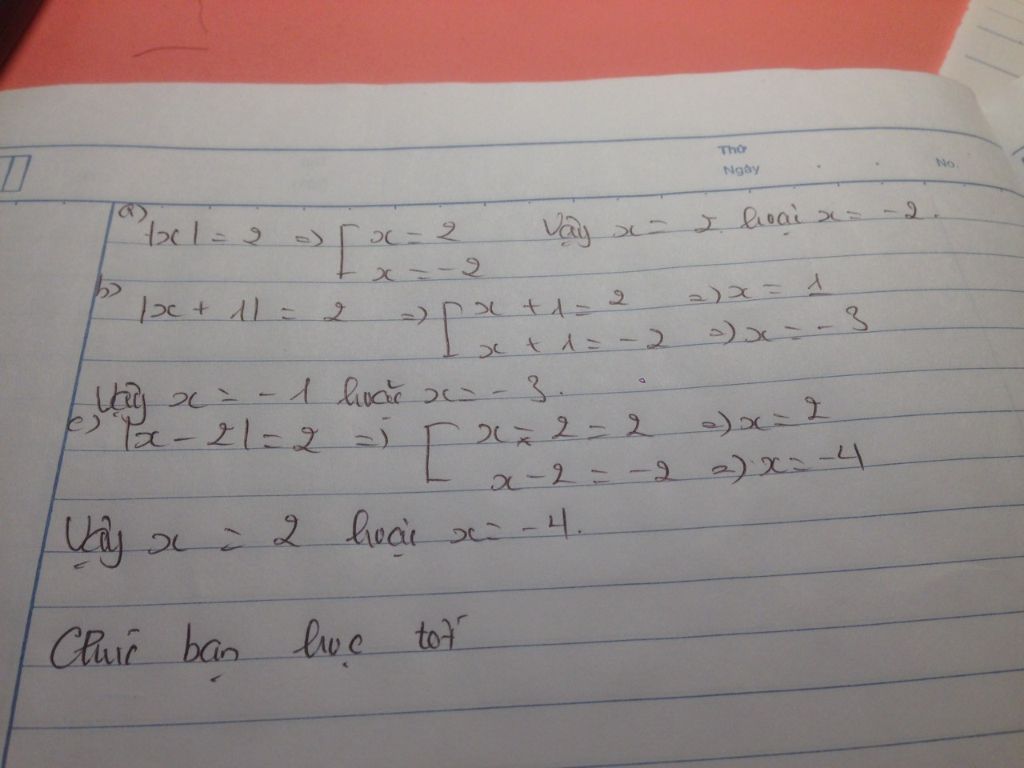 Thứ
Ngày
No.
a) |x| = 2 => [ x = 2 Vậy x = 2 hoặc x = -2.
x = -2
b) |x + 1| = 2 => [ x + 1 = 2 => x = 1
x + 1 = -2 => x = -3
Vậy x = -1 hoặc x = -3.
c) |x - 2| = 2 => [ x - 2 = 2 => x = 2
x - 2 = -2 => x = -4
Vậy x = 2 hoặc x = -4.
Chúc bạn học tốt